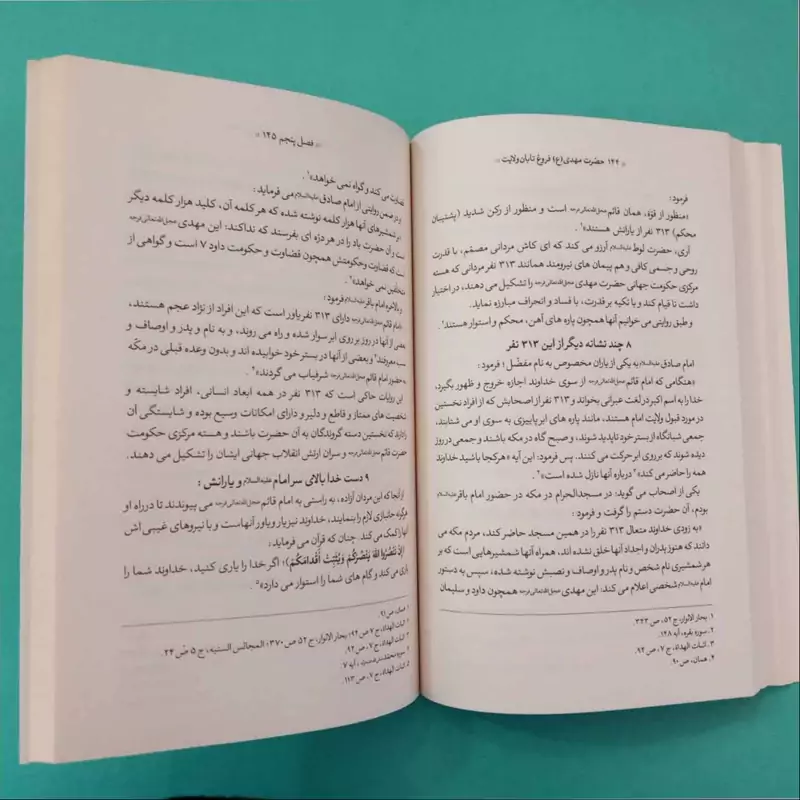 ۱۴۴ حضرت مهدی(ع) فروغ تابان ولایت
فرمود:
«منظور از قوّه، همان قائم عجل‌الله‌تعالی‌فرجه است و منظور از رکن شدید (پشتیبان
محکم) ۳۱۳ نفر از یارانش هستند»¹.
آری، حضرت لوط علیه‌السلام آرزو می کند که ای کاش مردانی مصمّم، با قدرت
روحی و جسمی کافی و هم پیمان های نیرومند همانند ۳۱۳ نفر مردانی که هسته
مرکزی حکومت جهانی حضرت مهدی عجل‌الله‌تعالی‌فرجه را تشکیل می دهند، در اختیار
داشت تا قیام کند و با تکیه بر قدرت، با فساد و انحراف مبارزه نماید.
و طبق روایتی می خوانیم آنها همچون پاره های آهن، محکم و استوار هستند².
۸ چند نشانه دیگر از این ۳۱۳ نفر
امام صادق علیه‌السلام به یکی از یاران مخصوص به نام مفضّل³ فرمود:
«هنگامی که امام قائم عجل‌الله‌تعالی‌فرجه از سوی خداوند اجازه خروج و ظهور بگیرد،
خدا را به اسم اکبر در لغت عبرانی بخواند و ۳۱۳ نفر از اصحابش که از افراد نخستین
در مورد قبول ولایت امام هستند، مانند پاره های ابر پاییزی به سوی او می شتابند،
جمعی شبانگاه از بستر خود ناپدید شوند، و صبح گاه در مکه باشند و جمعی در روز
دیده شوند که بر روی ابر حرکت می کنند. پس فرمود: این آیه «هرکجا باشید خداوند
همه را حاضر می کند»² درباره آنها نازل شده است»³.
یکی از اصحاب می گوید: در مسجدالحرام در مکه در حضور امام باقر علیه‌السلام
بودم، آن حضرت دستم را گرفت و فرمود:
«به زودی خداوند متعال ۳۱۳ نفر را در همین مسجد حاضر کند، مردم مکه می
دانند که هنوز پدران و اجداد آنها خلق نشده اند، همراه آنها شمشیرهایی است که بر
هر شمشیری نام شخص و نام پدر و اوصاف و نصبش نوشته شده، سپس به دستور
امام علیه‌السلام شخصی اعلام می کند: این مهدی عجل‌الله‌تعالی‌فرجه همچون داود و سلیمان
۱. بحار الانوار، ج ۵۲، ص ۳۲۳.
۲. سوره بقره، آیه ۱۴۸.
۳. اثبات الهداة، ج ۷، ص ۹۲.
۴. همان، ص ۹۰.
فصل پنجم ۱۴۵
قضاوت می کند و گواه نمی خواهد»¹.
و در ضمن روایتی از امام صادق علیه‌السلام می فرماید:
بر شمشیرهای آنها هزار کلمه نوشته شده که هر کلمه آن، کلید هزار کلمه دیگر
است و آن حضرت باد را در هر درّه ای بفرستد که نداکند: این مهدی عجل‌الله‌تعالی‌فرجه
است که قضاوت و حکومتش همچون قضاوت و حکومت داود ۷ است و گواهی از
مخالفین نمی خواهد».
و بالاخره امام باقر علیه‌السلام فرمود:
«امام قائم عجل‌الله‌تعالی‌فرجه دارای ۳۱۳ نفر یاور است که این افراد از نژاد عجم هستند،
بعضی از آنها در روز بر روی ابر سوار شده و راه می روند، و به نام و پدر و اوصاف و
نسب معروفند³ و بعضی از آنها در بستر خود خوابیده اند و بدون وعده قبلی در مکّه
به حضور امام قائم عجل‌الله‌تعالی‌فرجه شرفیاب می گردند»³
این روایات حاکی است که ۳۱۳ نفر در همه ابعاد انسانی، افراد شایسته و
شخصیت های ممتاز و قاطع و دلیر و دارای امکانات وسیع بوده و شایستگی آن
را دارند که نخستین دسته گروندگان به آن حضرت باشند و هسته مرکزی حکومت
حضرت قائم عجل‌الله‌تعالی‌فرجه و سران ارتش انقلاب جهانی ایشان را تشکیل می دهند.
۹ دست خدا بالای سر امام علیه‌السلام و یارانش :
از آنجا که این مردان آزاده، به راستی به امام قائم عجل‌الله‌تعالی‌فرجه می پیوندند تا در راه او
هرگونه جانبازی لازم را بنمایند، خداوند نیز یار و یاور آنهاست و با نیروهای غیبی اش
آنها را کمک می کند. چنان که قرآن می فرماید:
﴿إِنْ تَنْصُرُوا اللهَ يَنْصُرْكُمْ وَيُثَبِّتْ أَقْدَامَكُمْ﴾؛ اگر خدا را یاری کنید، خداوند شما را
یاری می کند و گام های شما را استوار می دارد»⁵
۱. همان، ص ۹۱.
۲. اثبات الهداة، ج ۷ ص ۹۲؛ بحار الانوار، ج ۵۲ ص ۳۷۰؛ المجالس السنیه، ج ۵ ص ۲۴.
۳. اثبات الهداة، ج ۷، ص ۹۲.
۴. سوره محمّد، آیه ۷.
۵. اثبات الهداة، ج ۷، ص ۱۱۳.